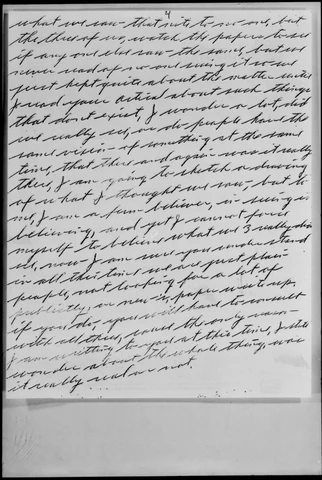 4
what we saw - that note to no one, but
the three of us, watch the papers to see
if any one else saw - the same, but we
never read of no one seeing it so we
just kept quite about the matter until
I read your articel about such things
that dont exist, I wonder a lot, did
we really see, or do people have the
same vision - of something at the same
time, that there and again was it really
there, I am going to sketch a drawing
of what I thought we saw - but to
me, I am a firm believer, in seeing is
believing, and yet I cannot force
myself to believe what we 3 really did
see, now I am sure you understand
in all this time we are just plain
people, not looking for a lot of
publicity, or news paper write up,
if you do, you will have to consult
with all three,
I am writting to you at this time, I still
wonder about the whole thing, was
it really real or not.